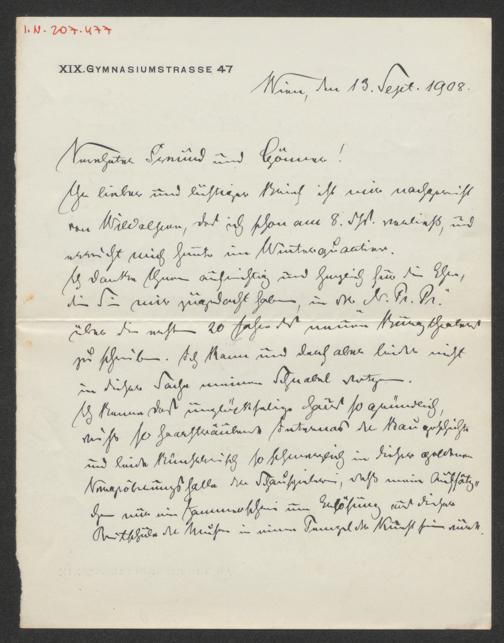 I.N. 207.477
XIX. GYMNASIUMSTRASSE 47
Wien, den 13. Sept. 1908.
Verehrter Freund und Gönner!
Ihr lieber und lustiger Brief ist mir nachgereist
von Wildalpen, das ich schon am 8. dM. verließ, und
erreicht mich heute im Winterquartier.
Ich danke Ihnen aufrichtig und herzlich für die Ehre,
die Sie mir zugedacht haben, in der „N. Fr. Pr."
über die ersten 20 Jahre des neuen Burgtheaters
zu schreiben. Ich kann und darf aber leider nicht
in dieser Sache meinen Schnabel wetzen.
Ich kenne das unglückselige Haus so gründlich,
weiß so haarsträubende Interna der Baugeschichte
und leide künstlerisch so schmerzlich in dieser goldenen
der Schauspielerei, daß mein Aufsätz-
chen nur ein Jammerschrei um Erlösung aus dieser
der Musen in einen Tempel der Kunst sein würde.